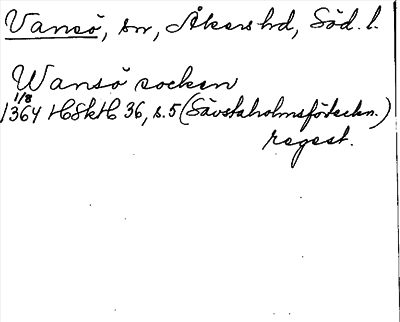 Vansö, sn, Åkers hd, Söd. l.
Wansö socken
1/8
1364 HSkH 36, s. 5 (Sävstaholmsförteckn.)
regest.